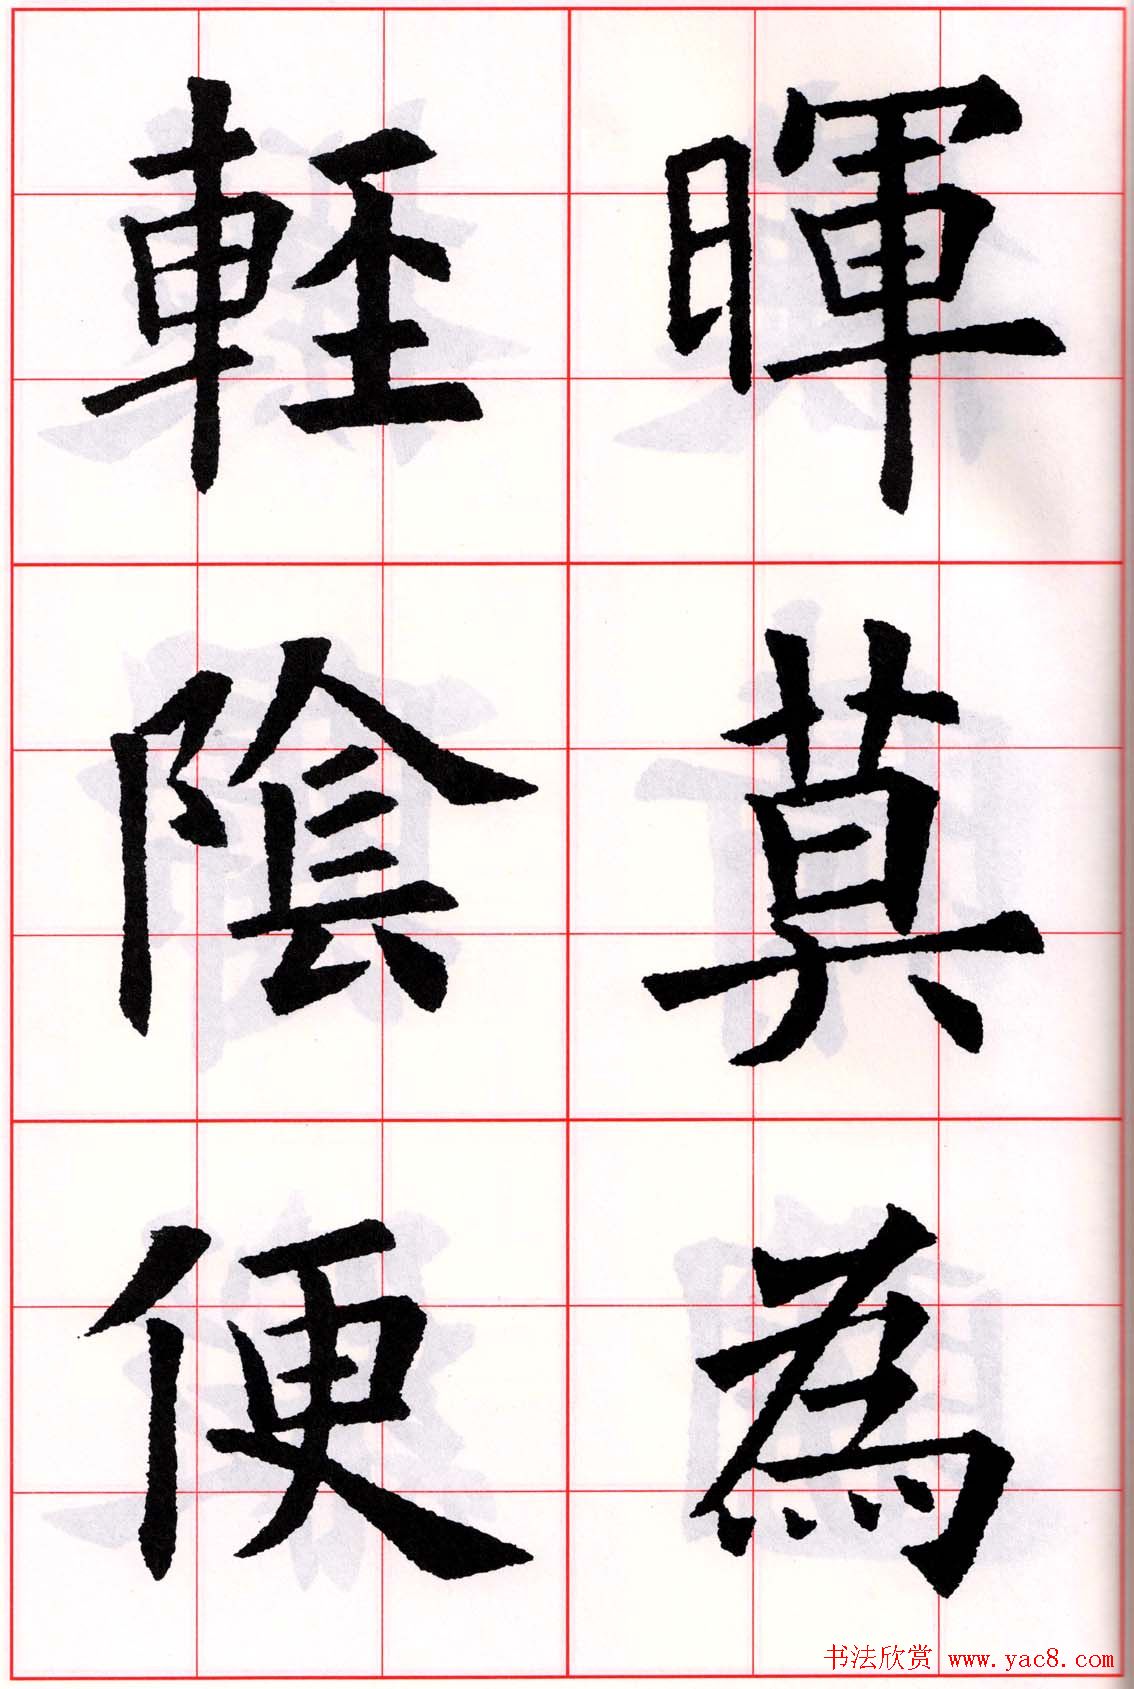 暉莫為
輕陰便
书法欣赏 www.yac8.com